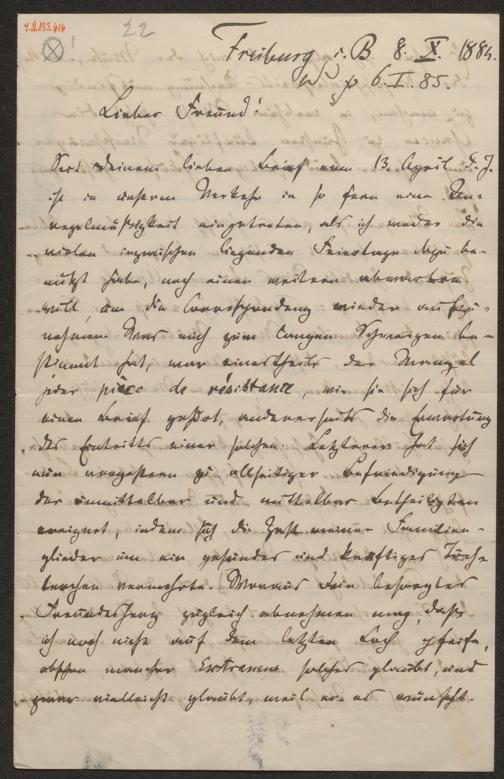 I.N. 133.616
22
Freiburg i. B 8. X. 1884.
p 6. I. 85.
Lieber Freund!
Seit Deinem lieben Brief vom 13. April d. J.
ist in unserem Verkehr in so fern eine Un-
regelmäßigkeit eingetreten, als ich weder die
vielen inzwischen liegenden Feiertage dazu be-
nutzt habe, noch einen weitern abwarten
will, um die Correspondenz wieder aufzu-
nehmen. Was mich zum langen Schweigen be-
stimmt hat, war einestheils der Mangel
jeder pièce de résistance, wie sie sich für
einen Brief gehört, anderseits die Erwartung
des Eintritts einer solchen. Letzterer hat sich
nun vorgestern zu allseitiger Befriedigung
der unmittelbar und mittelbar Betheiligten
ereignet, indem sich die Zahl meiner Familien-
glieder um ein gesundes und kräftiges Töch-
terchen vermehrte. Woraus Dein besorgtes
Freundesherz zugleich abnehmen mag, dass
ich noch nicht auf dem letzten Loch pfeife,
obschon mancher solches glaubt, und
zwar vielleicht glaubt, weil er es wünscht.